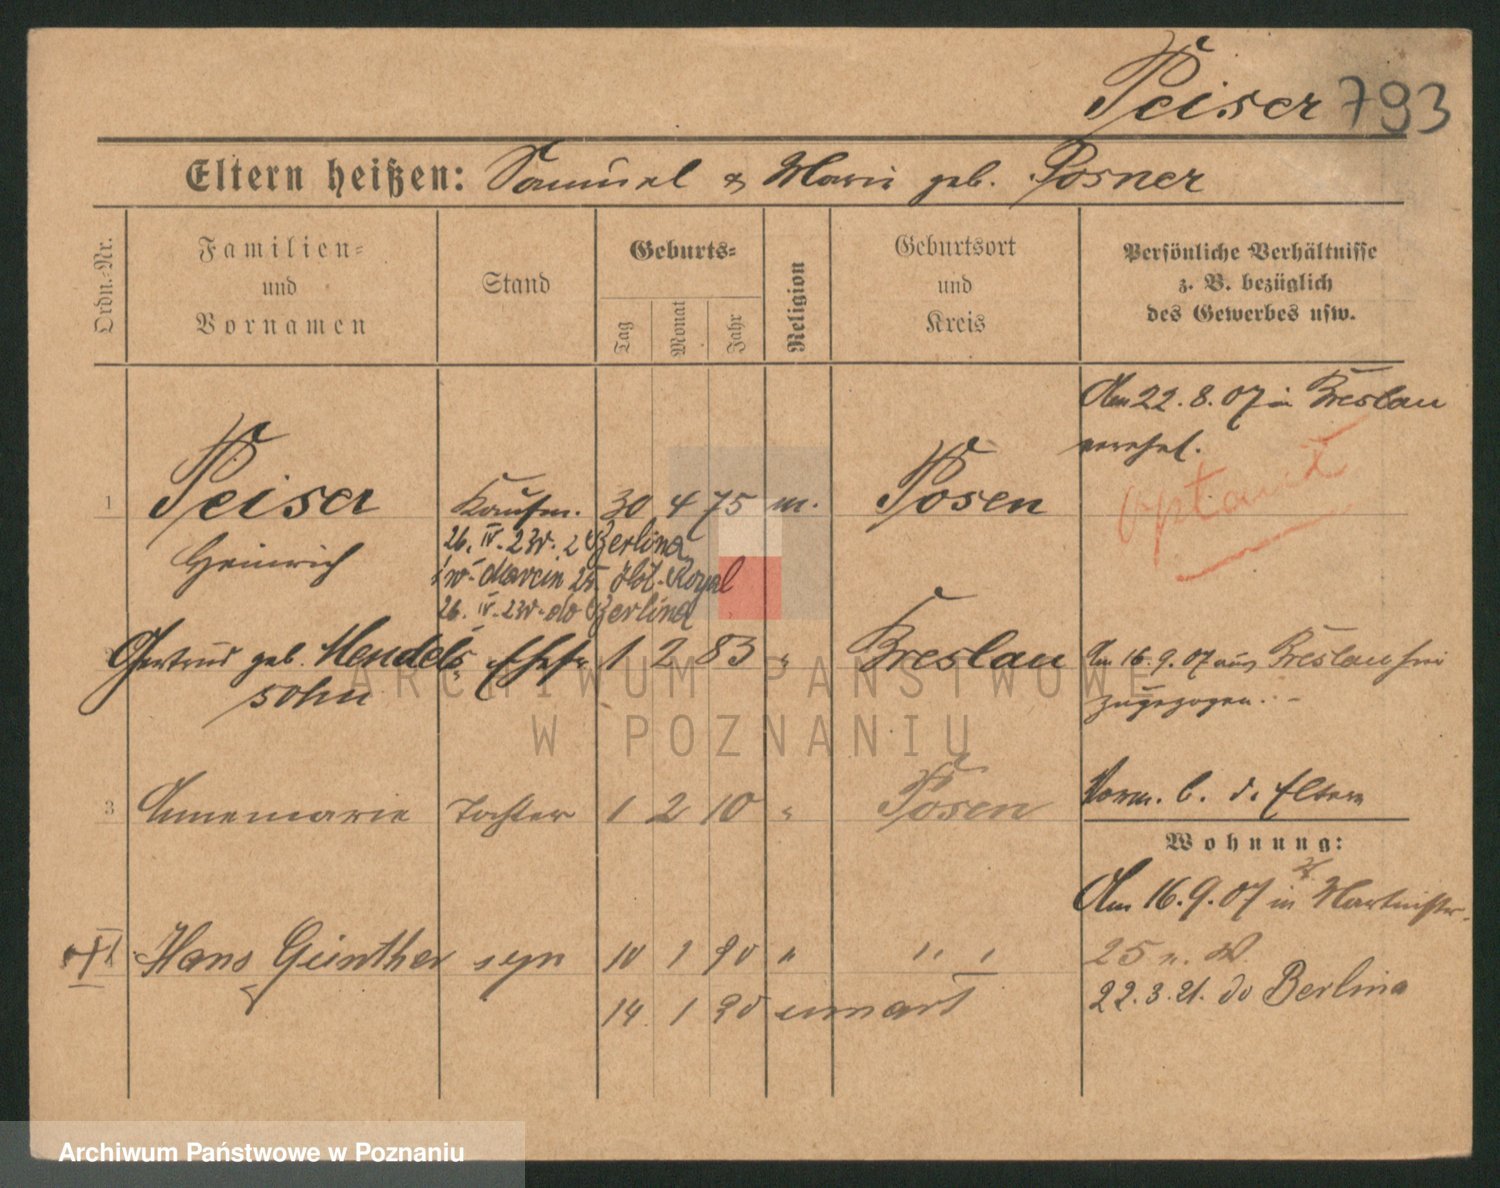 Peiser 793
Eltern heißen: Samuel & Marie geb. Posner
Ordn.-Nr.
Familien-
und
Vornamen
Stand
Geburts-
Tag
Monat
Jahr
Religion
Geburtsort
und
Kreis
Persönliche Verhältnisse
z. B. bezüglich
des Gewerbes usw.
Am 22. 8. 07 in Breslau
verehel.
1 Peiser Kaufm. 30 4 75 m. Posen
optant
Heinrich
26. IV. 23r. z Berlina
św. Marcin Hot. Royal
26. IV. 23r. do Berlina
2 Gertrud geb. Mendels- Ehefr. 1 2 83 " Breslau
sohn
Am 16. 9. 07 aus Breslau
zugezogen.
3 Annemarie Tochter 1 2 10 " Posen
Vorm. b. d. Eltern
Wohnung:
Am 16. 9. 07 in
25
22. 3. 21. do Berlina
Hans Günther syn 10 1 20 " " "
14 1 20 umarł
ARCHIWUM PAŃSTWOWE
W POZNANIU
Archiwum Państwowe w Poznaniu